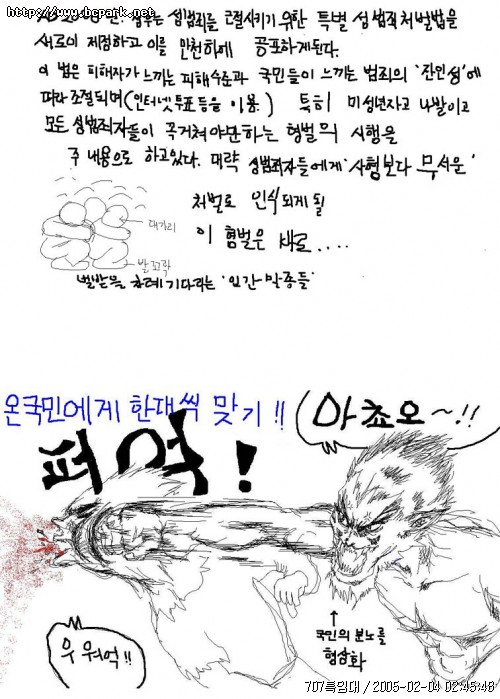 http://www.hcpark.net
정부는 성범죄를 근절시키기 위한 특별 성범죄 처벌법을
새로이 제정하고 이를 만천하에 공포하게된다.
이 법은 피해자가 느끼는 피해수준과 국민들이 느끼는 범죄의 '잔인성'에
따라 조절되며(인터넷 투표 등을 이용) 특히 미성년자고 나발이고
모든 성범죄자들이 꼭 거쳐야만하는 형벌의 시행을
주 내용으로 하고있다. 대략 성범죄자들에게 '사형보다 무서운'
처벌로 인식되게 될
이 형벌은 바로....
대가리
발꼬락
벌받을 차례 기다리는 '인간 말종들'
온국민에게 한대씩 맞기!!
아쵸오~!!
퍼억!
우워억!!
↑
국민의 분노를
형상화
707특임대 / 2005-02-04 02:45:46